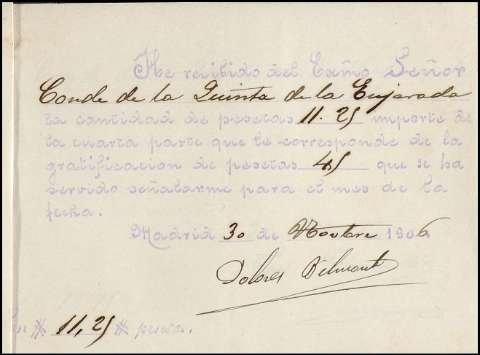 He recibido del Exmo Señor
Conde de la Quinta de la Enjarada
la cantidad de pesetas 11.25 importe de
la cuarta parte que le corresponde de la
gratificacion de pesetas 45 que se ha
servido señalarme para el mes de la
fecha.
Madrid 30 de Novbre 1906
Dolores Belmonte
11,25 pesetas.